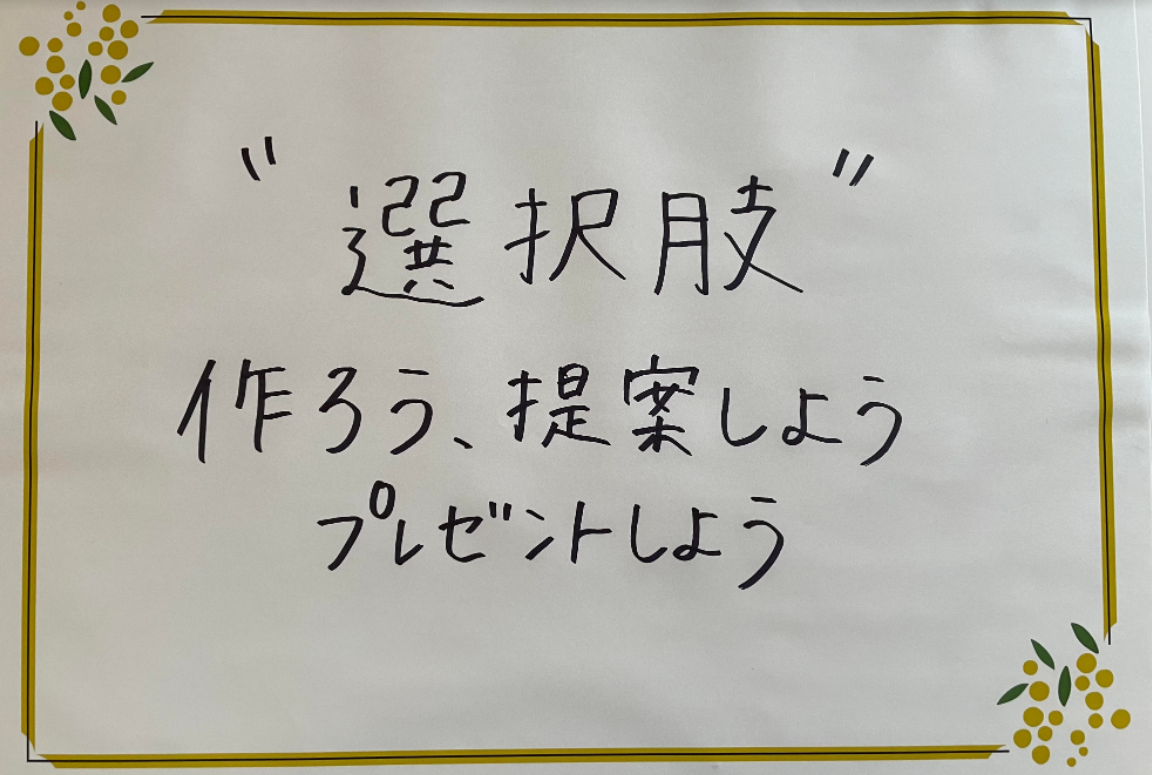 "選択肢"
作ろう、提案しよう
プレゼントしよう